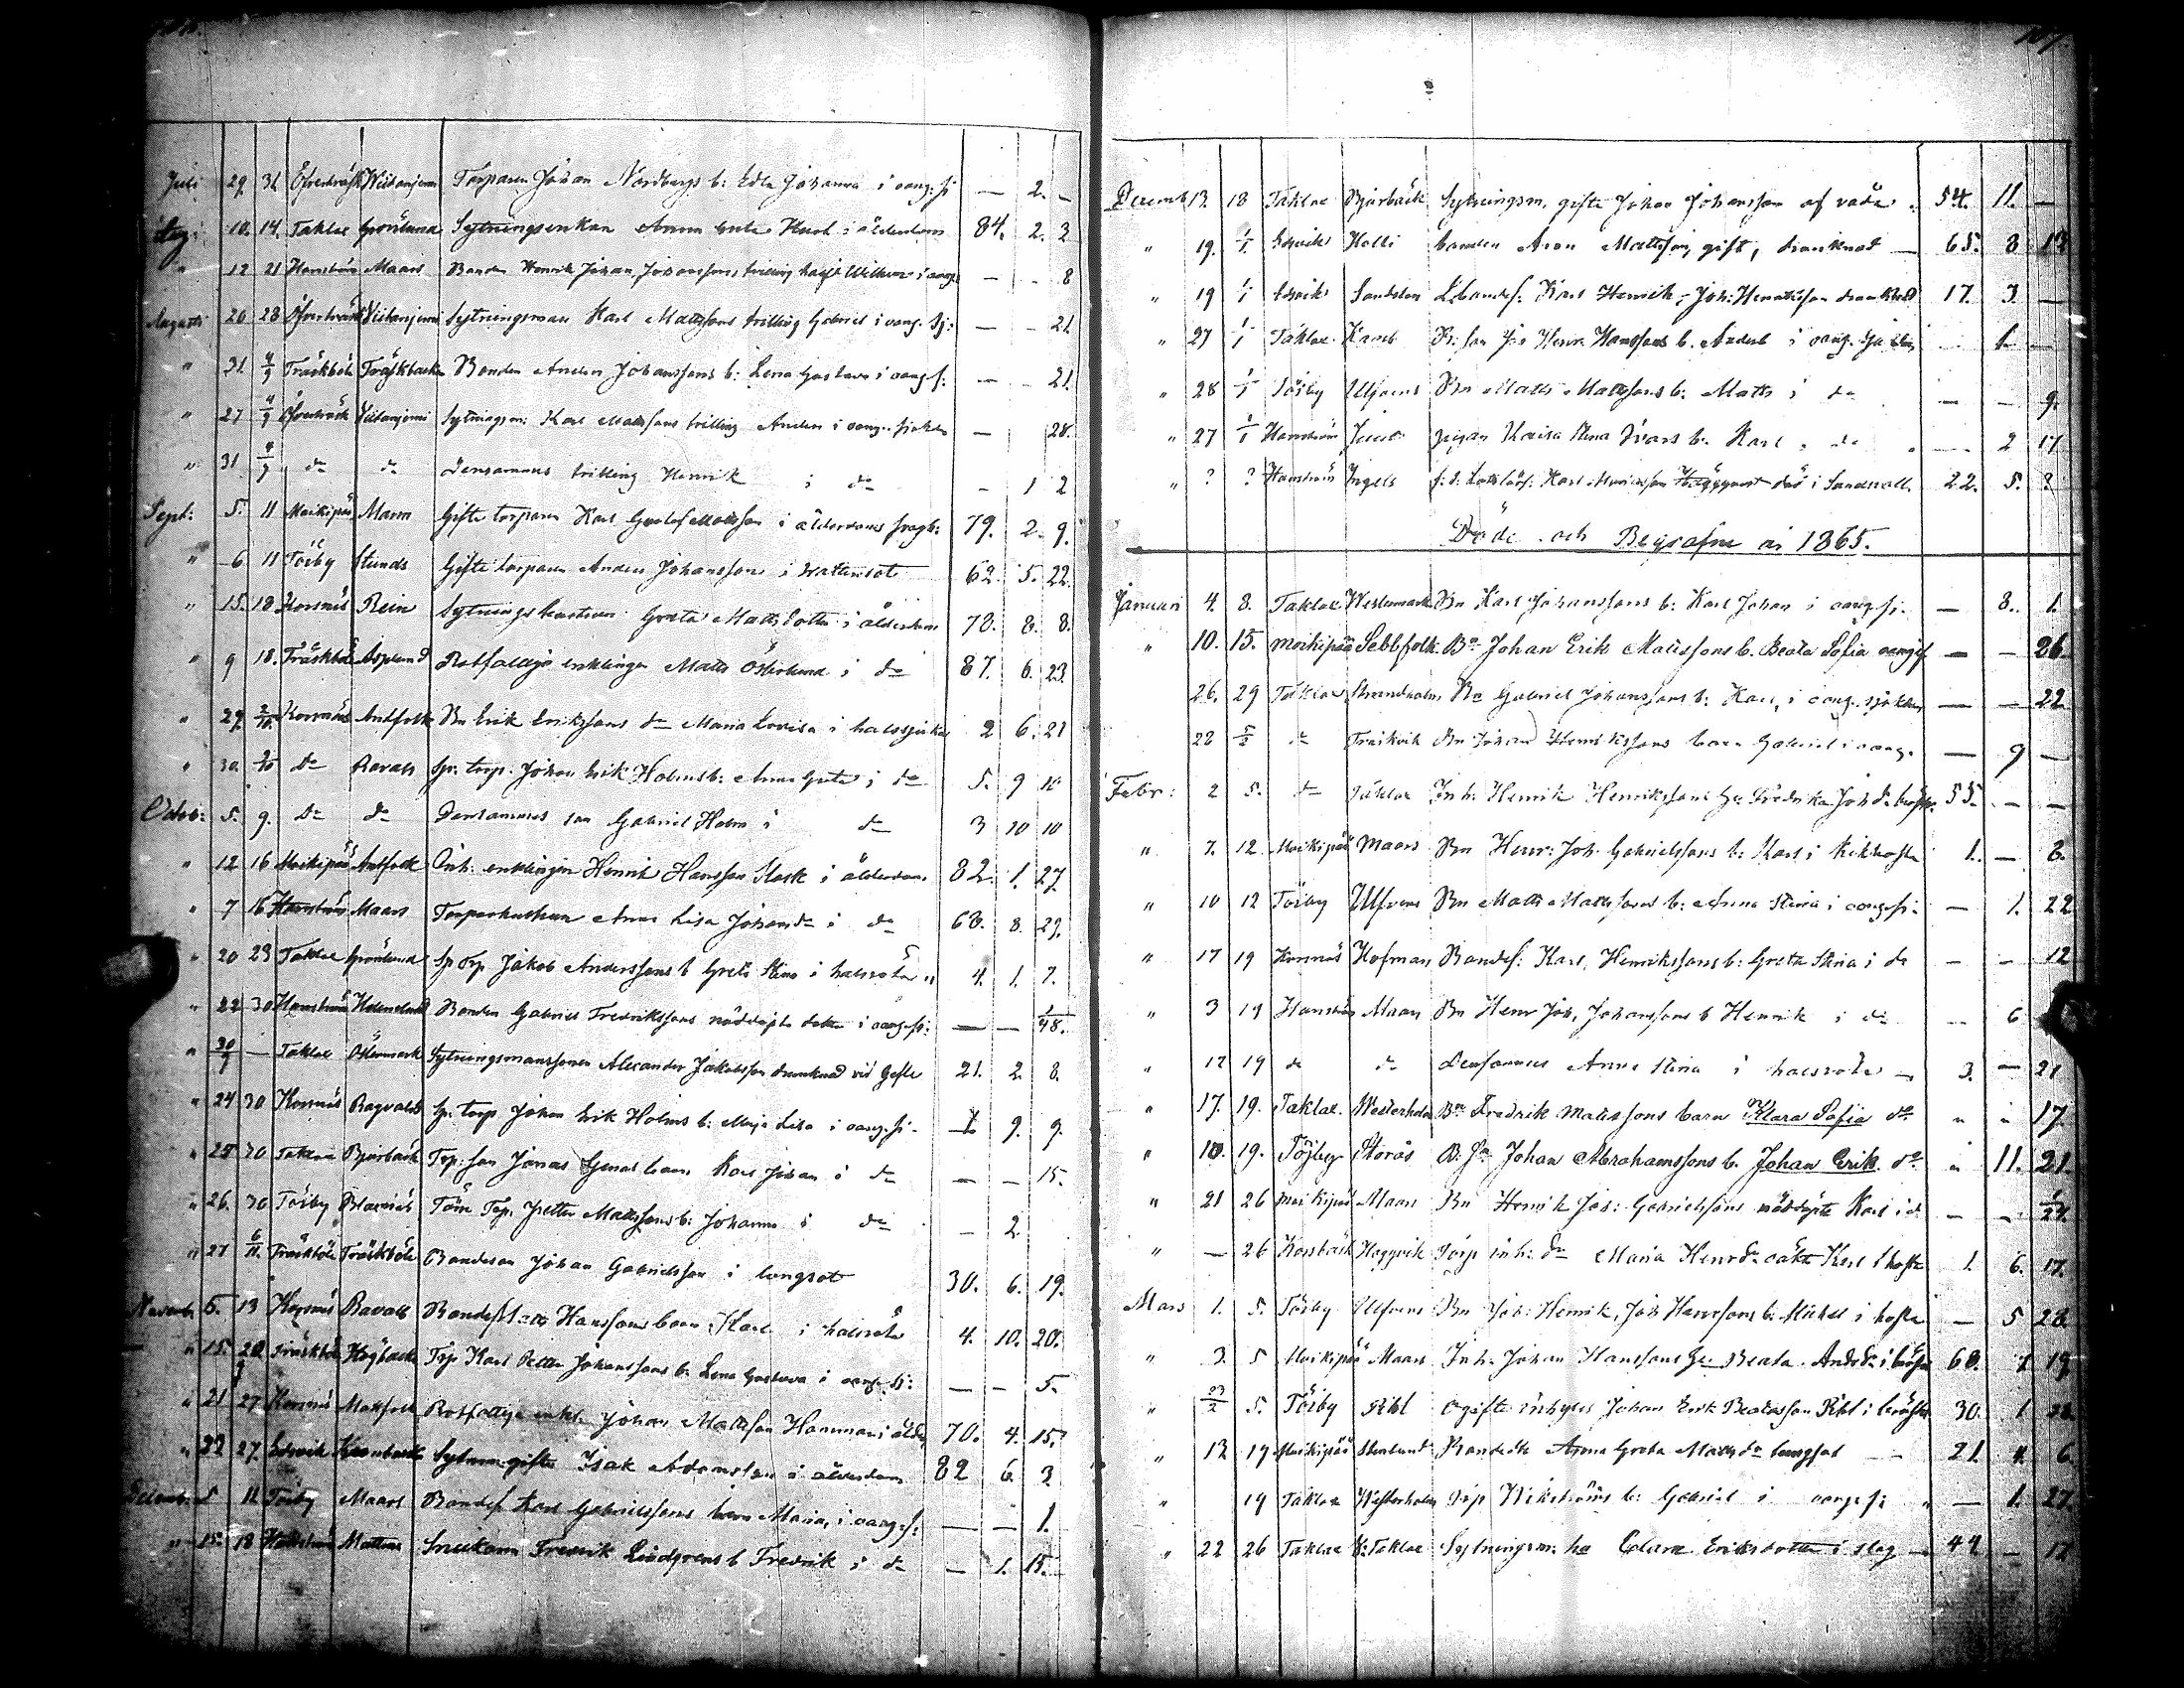 Juli 29 31 Öfverträsk Viitanjemi Torparen Johan Nordbergs b: Edla Johanna i oang: sj — 2. —
Aug: 10. 14. Taklax Grönlund Sytningsenkan Anna Hust i ålderdom 84. 2. 3
" 12 21 Harrström Maars Bonden Henrik Johan Johanssons trilling i oang: — - 8
Augusti 20 28 Öfverträsk Viitanjemi Sytningsman Karl Mattssons trilling Gabriel i oang. sj: — - 21
" 31. 4/9 Träskböle Träskbacka Bonden Anders Johanssons b: Lena Gustava i oang. s: — - 21.
" 27 4/9 Öfverträsk Viitanjemi Sytningsm: Karl Mattssons trilling Anders i oang. sjukdom — 28.
" 31 4/9 do do densammes trilling Henrik i do - 1 2
Sept: 5. 11 Moikipää Marn Gifte torparen Karl Gustaf Mattsson i ålderdoms 79. 2. 9.
" 6 11 Töjby Stunds Gifte torparen Anders Johansson i vattensot 62. 5. 22.
" 15. 18 Korsnäs Rein Sytnings hustrun Greta Mattsdotter i ålderdom 78. 8. 8.
" 9 18. Träskböle Asplund Rotfattige enklingen Matts Österlund i do 87. 6. 23.
" 29. 2/10. Korsnäs Antfolk Bn Erik Erikssons dr Maria Lovisa i halssjuka 2 6. 21
" 30. 2/10 do Ravals Sp: torp. Johan Erik Holms b: Anna Greta i do 5. 9 10
Octob: 5. 9. do do Densammes son Gabriel Holm i do 3 10 10
" 12 16 Moikipää Antfolk Inh: enklingen Henrik Hansson Stark i ålderdom. 82. 1. 27.
" 7 16 Harrström Maars Torparhustrun Anna Lisa Johansdr i do 63. 8. 29.
" 20 23 Taklax Grönlund Sp Torp Jakob Anderssons b Greta Stina i halsröta " 4. 1. 7.
" 22 30 Harrström Bonden Gabriel Fredrikssons nöddöpta dotter i oang: sj: — — 1/48.
" 30/9 — Taklax Östermark Sytningsmanssonen Alexander Jakobsson drunknad vid Gefle 21. 2. 8.
" 24 30 Korsnäs Ragvals Sp: torp Johan Erik Holms b: Maja Lisa i oang: sj. 1. 9. 9.
" 28 30 Taklax Bjurbäck Trp: son Jonas barn Karl Johan i do — — 15.
" 26. 30 Töjby Torp. Petter Mattssons b: Johanna i do — 2
" 27 6/11. Träskböle Träskböle Bondeson Johan Gabrielsson i lungsot 30. 6. 19.
Novemb. 6. 13 Korsnäs Ravals Bondes: Matts Hanssons barn Karl i halsröta 4. 10. 20.
" 15. 20 Träskböle Högbacka Trp Karl Petter Johanssons b: Lena Gustava i oang: sj: — — 5.
" 21 27 Korsnäs Matsfolk Rotfattige enkl. Johan Mattsson Hamman i ålder 70. 4. 15.
" 22 27. Edsvik Kronback Sytnm gifte Isak Adamsson i ålderdom 82 6. 3
Decemb. 5 11 Töjby Maars Bondes Karl Gabrielssons barn Maria, i oang. s: — — 1.
" 15. 18 Harrström Mattas Snickaren Fredrik Lindgrens b Fredrik i do — 1. 15.
107.
Decemb 13 18 Taklax Bjurbäck Sytningsm. gifte Johan Johansson af våda 54. 11. —
" 19. 1/1 Edsvik Holli bonden Aron Mattsson, gift, drunknad — 65. 8 13
" 19 1/1 Edsvik Sandsten Karl Henrik, Joh: Henriksson drunknad 17. 3. —
" 27 1/1 Taklax Kambb B: son Joh Henr. Hanssons b. Anders i oang. sjukdom — 1. —
" 28 1/1 Töjby Ulfvens Bn Matts Mattssons b. Matts i do — — 9.
" 27 1/1 Harrström Juut pigan Kaisa Stina Ivars b: Karl i do — 2 17
" ? ? Harrström Ingels f. d. Karl Henriksson Häggqvist död i Sundsvall. 22. 5. 8
Döde och Begrafne år 1865.
Januari 4. 8. Taklax Westermark Bn Karl Johanssons b: Karl Johan i oang. sj. — 8. 1.
" 10. 15. Moikipää Sebbfolk. Bn Johan Erik Mattssons b. Beata Sofia oang: sj — — 26.
26. 29 Taklax Strandholm Bn Gabriel Johanssons b: Karl, i oang. sjukdom — — 22.
28 5/2 do Träskvik Bn Johan Henrikssons barn Gabriel i oang. — 9 —
Febr: 2 5. do Taklax Inh: Henrik Henrikssons hu Fredrika Johdr bröstsj. 55. — —
" 7. 12 Moikipää Maars Bn Henr: Joh. Gabrielssons b: Karl i kikhosta 1. — 8.
" 10 12 Töjby Ulfvens Bn Matts Mattssons b: Anna Stina i oang: sj. — 1. 22
" 17 19 Korsnäs Hofman Bondes: Karl Henrikssons b: Greta Stina i do — — 12
" 3 19 Harrström Maars Bn Henr Joh. Johanssons b Henrik i do — 6
" 12 19 do do Densammes Anna Stina i halsröta — 3. — 21
" 17. 19. Taklax. Westerholm Bn Fredrik Matssons barn Klara Sofia do " " 17.
" 10. 19. Töjby Storås B. sn Johan Abrahamssons b. Johan Erik. do " 11. 21
" 21 26 Moikipää Maars Bn Henrik Joh: Gabrielssons nöddöpte Karl i do — — 1/24.
" — 26 Korsbäck Häggvik Torp inh: dr Maria Henrdr oäkta Karl i hosta 1. 6. 17.
Mars 1. 5. Töjby Ulfvens Bn Joh: Henrik, Joh Hanssons b. Mickel i hosta — 5 28
" 3. 5 Moikipää Maars Inh. Johan Hanssons hu Beata Andsdr i bröstsj 60. 1 19
" 23/2 5. Töjby Ribl Ogifte inhyses Johan Erik Beatasson Ribl i bröstsj 30. 1 22
" 12 19 Moikipää Stenlund Bondedtr Anna Greta Mattsdr lungsot — 21. 4. 6.
" 19 Taklax Westerholm Trp Wikströms b: Gabriel i oang: sj " — 1. 27.
" 22 26 Taklax L:Taklax Sytningsm: hu Clara Eriksdotter i slag — 42 — 12